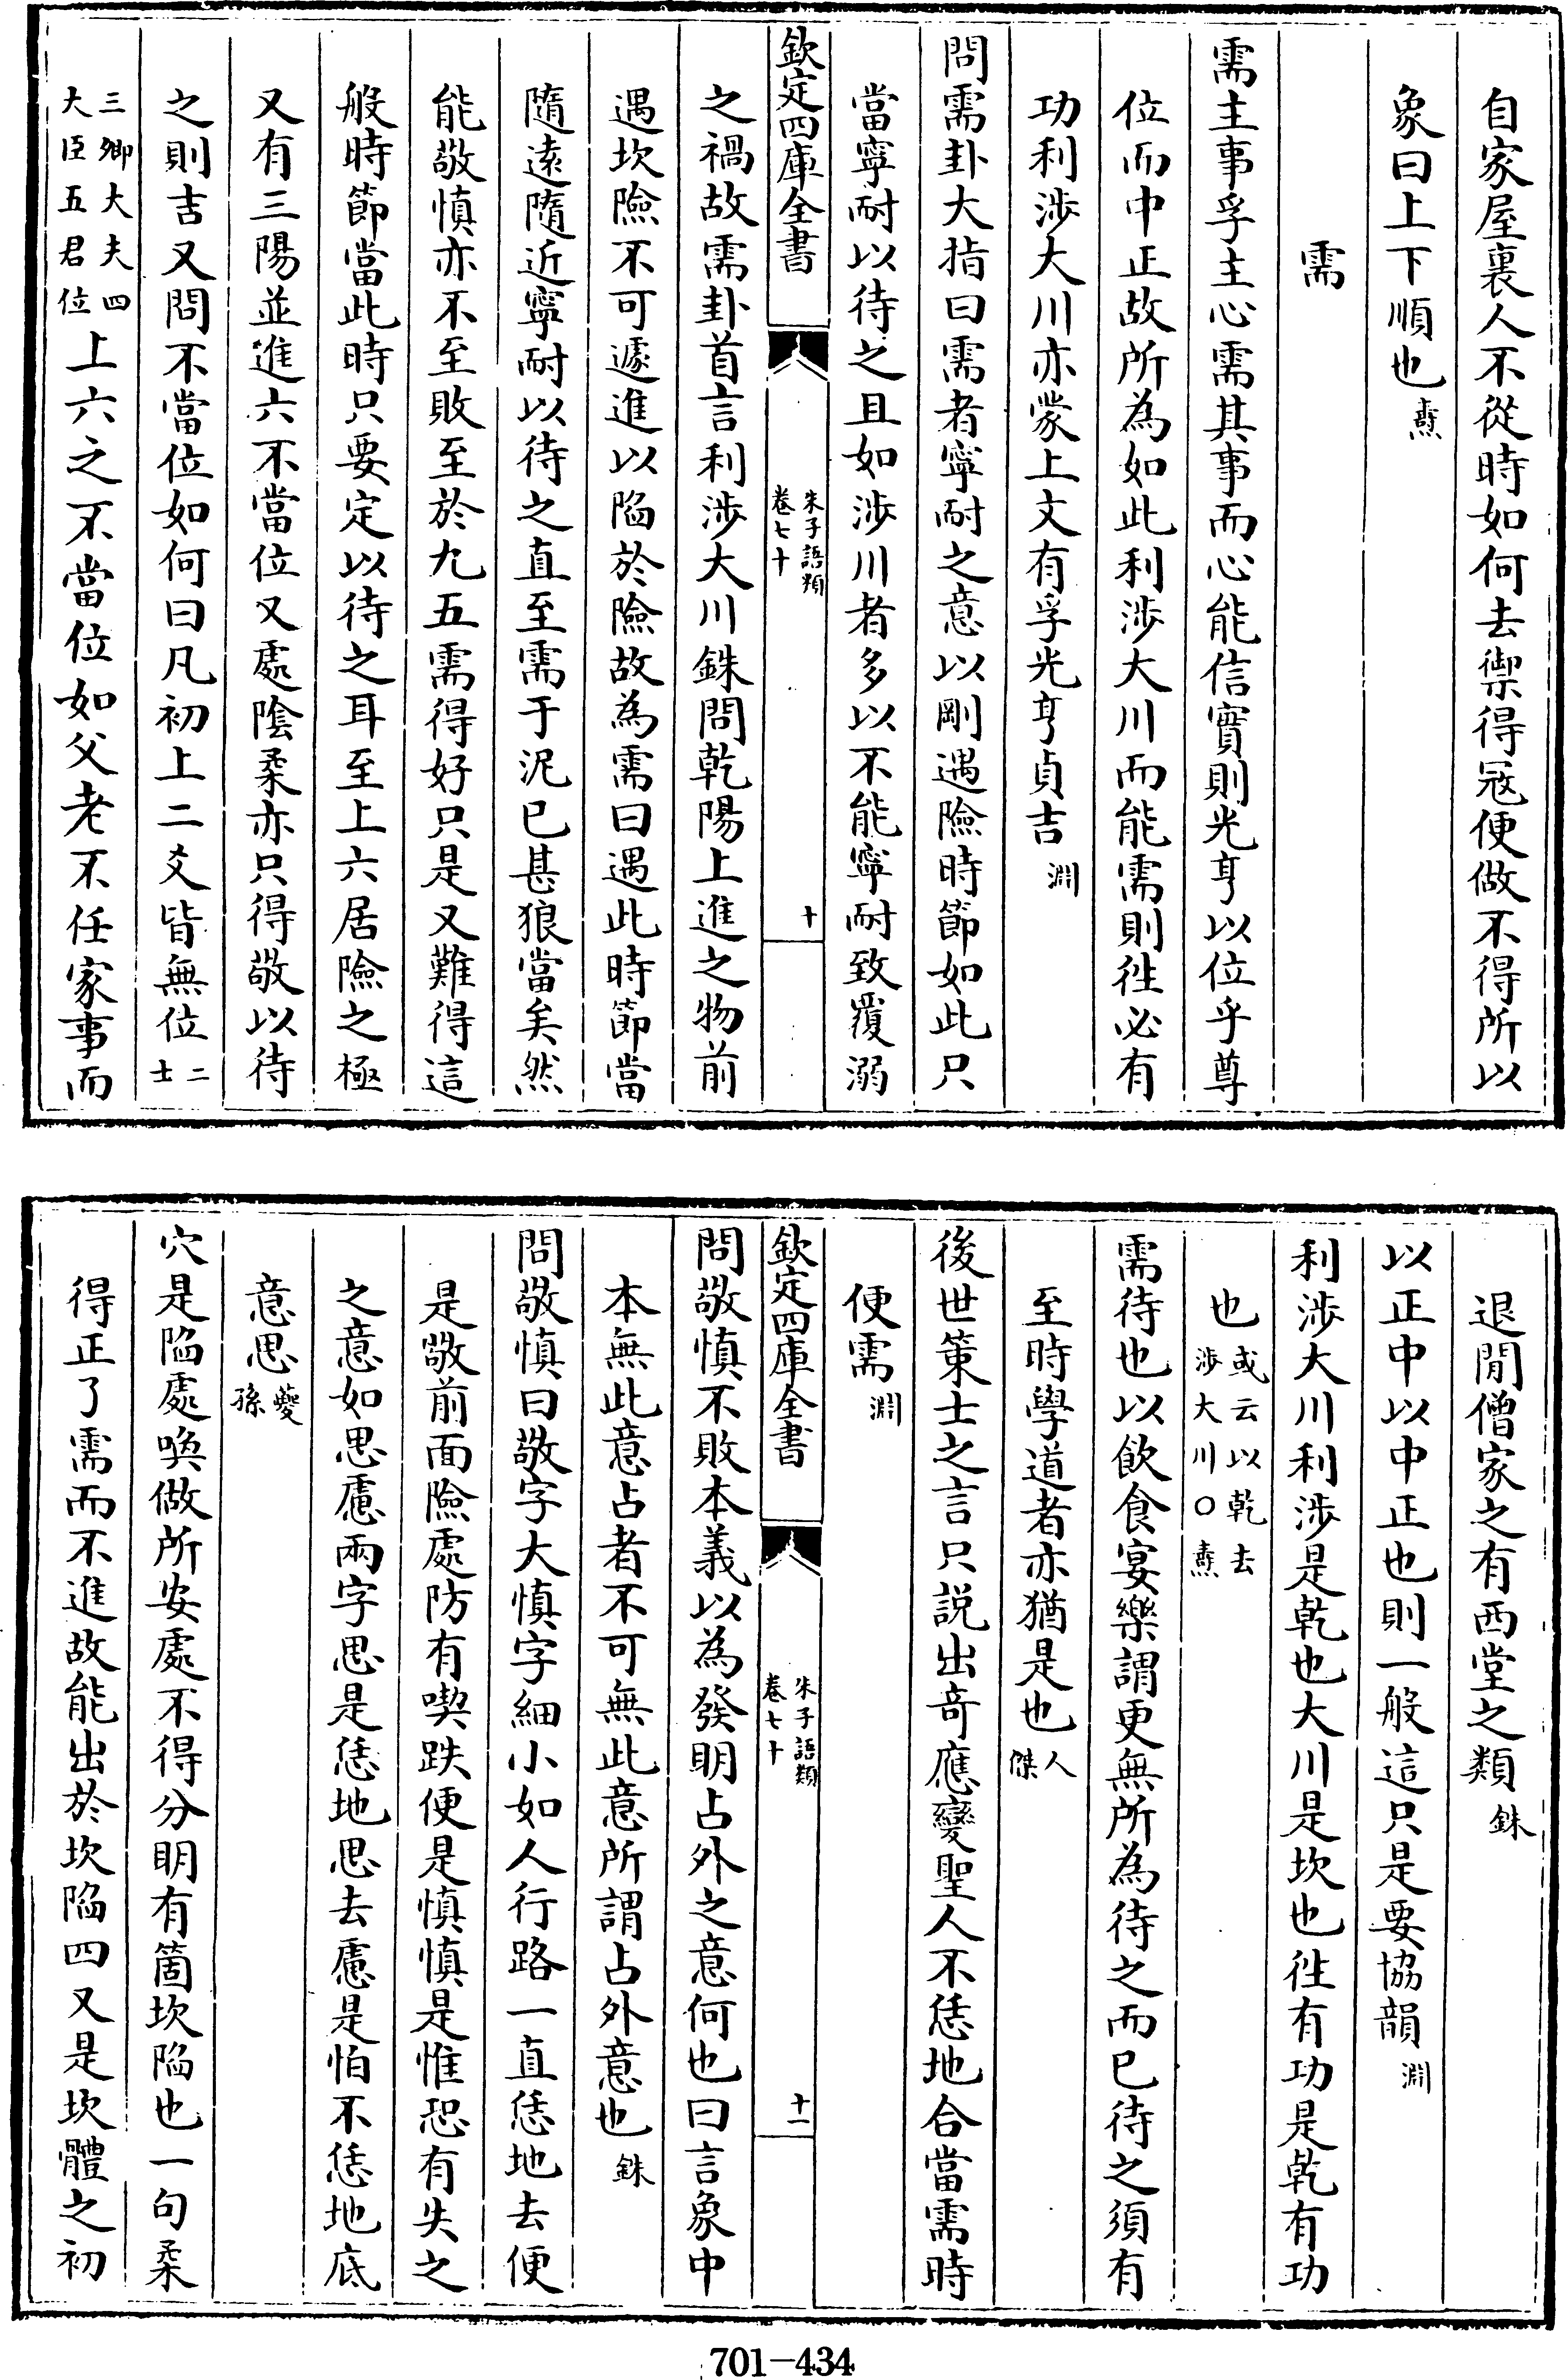 自家屋裏人不從時如何去禦得冦便做不得所以
象曰上下順也 燾
需
需主事孚主心需其事而心能信實則光亨以位乎尊
位而中正故所為如此利涉大川而能需則徃必有
功利涉大川亦蒙上文有孚光亨貞吉 淵
問需卦大指曰需者寧耐之意以剛遇險時節如此只
當寧耐以待之且如涉川者多以不能寧耐致覆溺
欽定四庫全書 朱子語類 卷七十 十
之禍故需卦首言利涉大川銖問乾陽上進之物前
遇坎險不可遽進以陷於險故為需曰遇此時節當
隨遠隨近寧耐以待之直至需于泥已甚狼當矣然
能敬慎亦不至敗至於九五需得好只是又難得這
般時節當此時只要定以待之耳至上六居險之極
又有三陽並進六不當位又處陰柔亦只得敬以待
之則吉又問不當位如何曰凡初上二爻皆無位 二士
三卿大夫四大臣五君位 上六之不當位如父老不任家事而
退閒僧家之有西堂之類 銖
以正中以中正也則一般這只是要協韻 淵
利涉大川利涉是乾也大川是坎也徃有功是乾有功
也 或云以乾去涉大川○燾
需待也以飲食宴樂謂更無所為待之而已待之須有
至時學道者亦猶是也 人傑
後世策士之言只説出奇應變聖人不恁地合當需時
便需 淵
欽定四庫全書 朱子語類 卷七十 十一
問敬慎不敗本義以為發明占外之意何也曰言象中
本無此意占者不可無此意所謂占外意也 銖
問敬慎曰敬字大慎字細小如人行路一直恁地去便
是敬前面險處防有喫跌便是慎慎是惟恐有失之
之意如思慮兩字思是恁地思去慮是怕不恁地底
意思 夔孫
穴是陷處喚做所安處不得分明有箇坎陷也一句柔
得正了需而不進故能出於坎陷四又是坎體之初
701-434